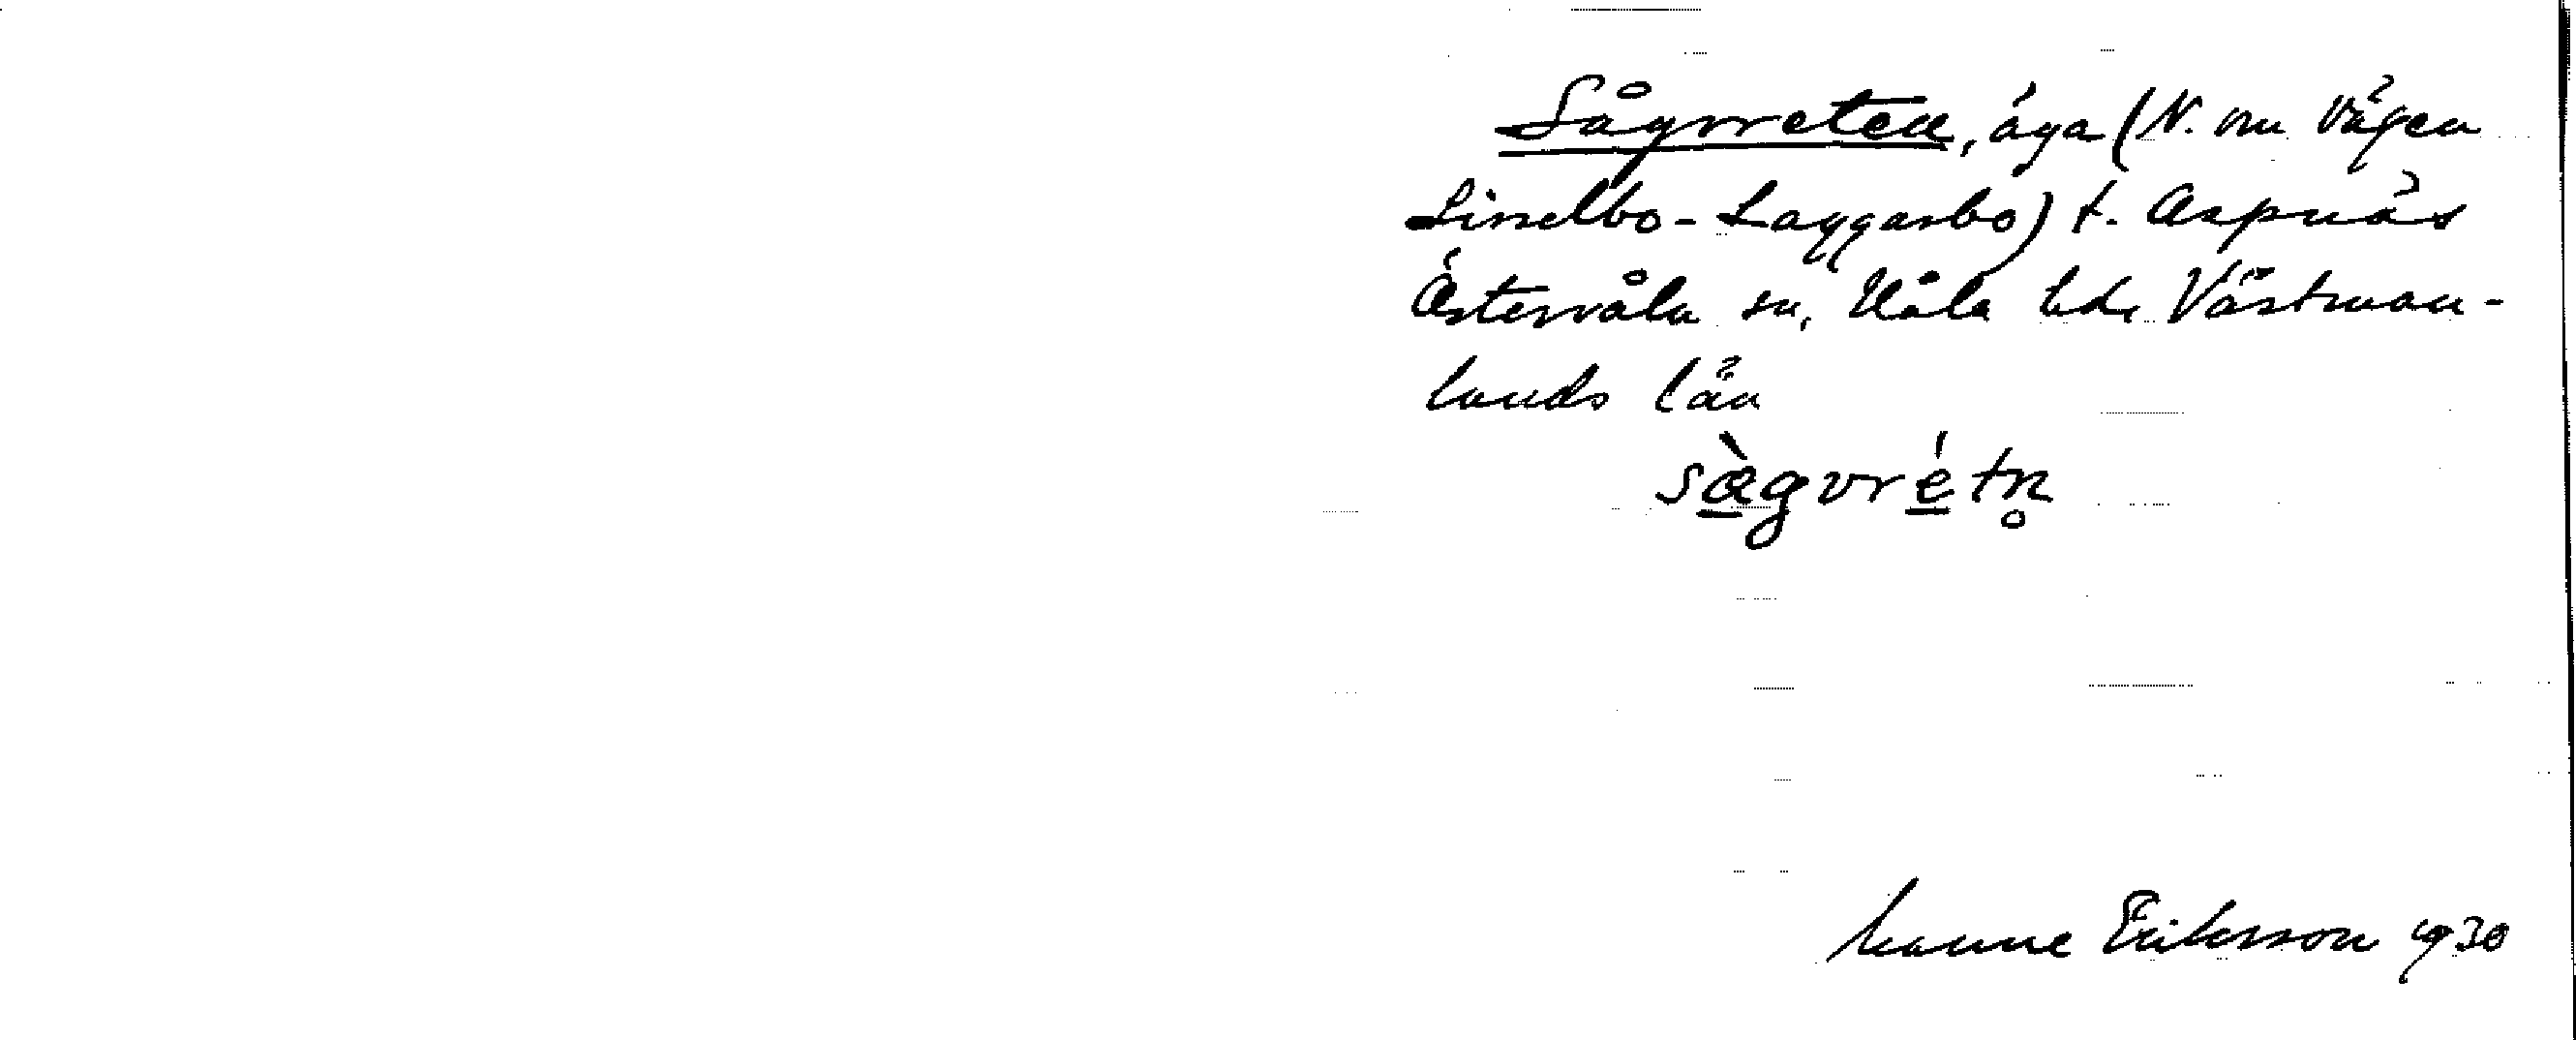 Sågvreten, äga (N. om vägen
Sisselbo - Laggarbo) t. Aspnäs
Östervåla sn, Våla hd, Västman-
lands län
sàgvrétn̥
Manne Eriksson 1930